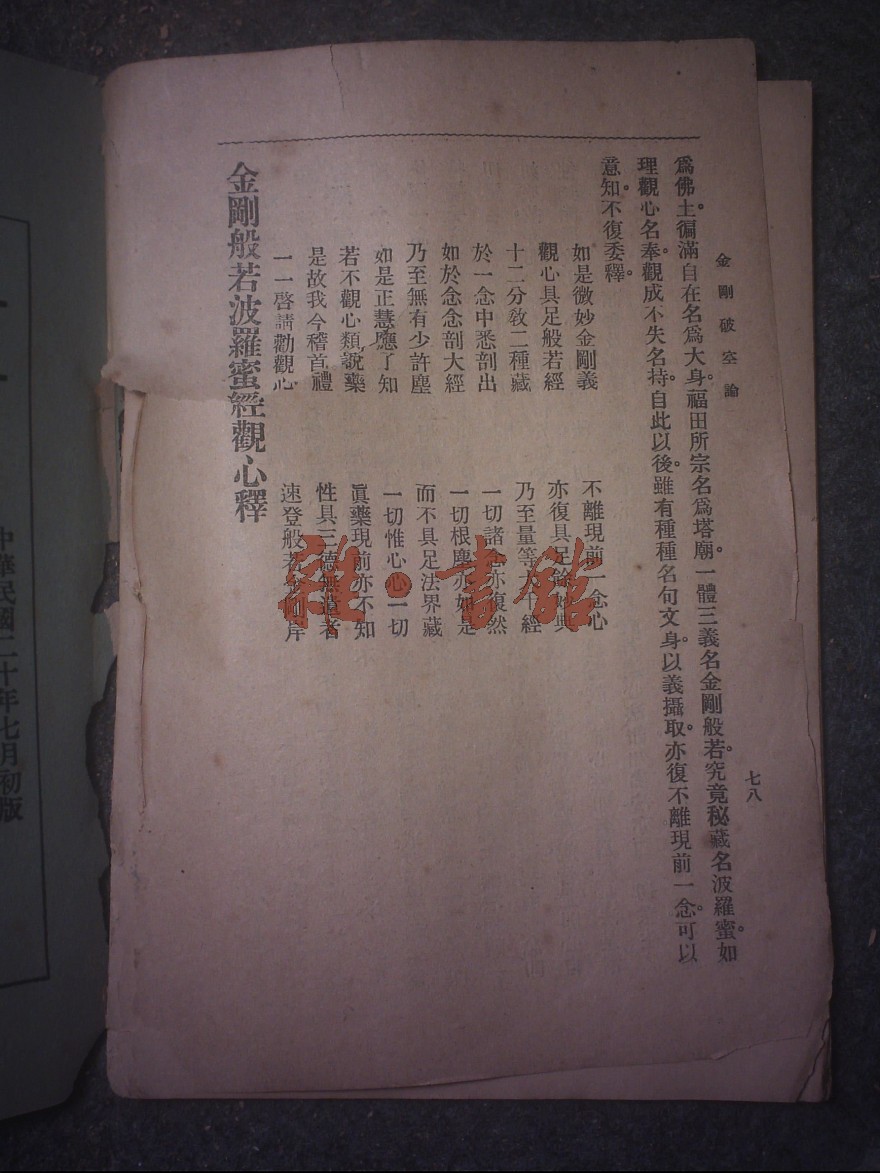 金剛破空論
七八
爲佛土。徧滿自在名爲大身。福田所宗名爲塔廟。一體三義名金剛般若。究竟秘藏名波羅蜜。如
理觀心名奉。觀成不失名持。自此以後。雖有種種名句文身。以義攝取。亦復不離現前一念。可以
意知。不復委釋。
如是微妙金剛義 不離現前一念心
觀心具足般若經 亦復具足餘妙典
十二分敎二種藏 乃至量等大千經
於一念中悉剖出 一切諸念亦復然
如於念念剖大經 一切根塵亦如是
乃至無有少許塵 而不具足法界藏
如是正慧應了知 一切惟心心一切
若不觀心類說藥 眞藥現前亦不知
是故我今稽首禮 性具三德無遺者
一一啓請勸觀心 速登般若金剛岸
金剛般若波羅蜜經觀心釋
中華民國二十年七月初版
雅·書館